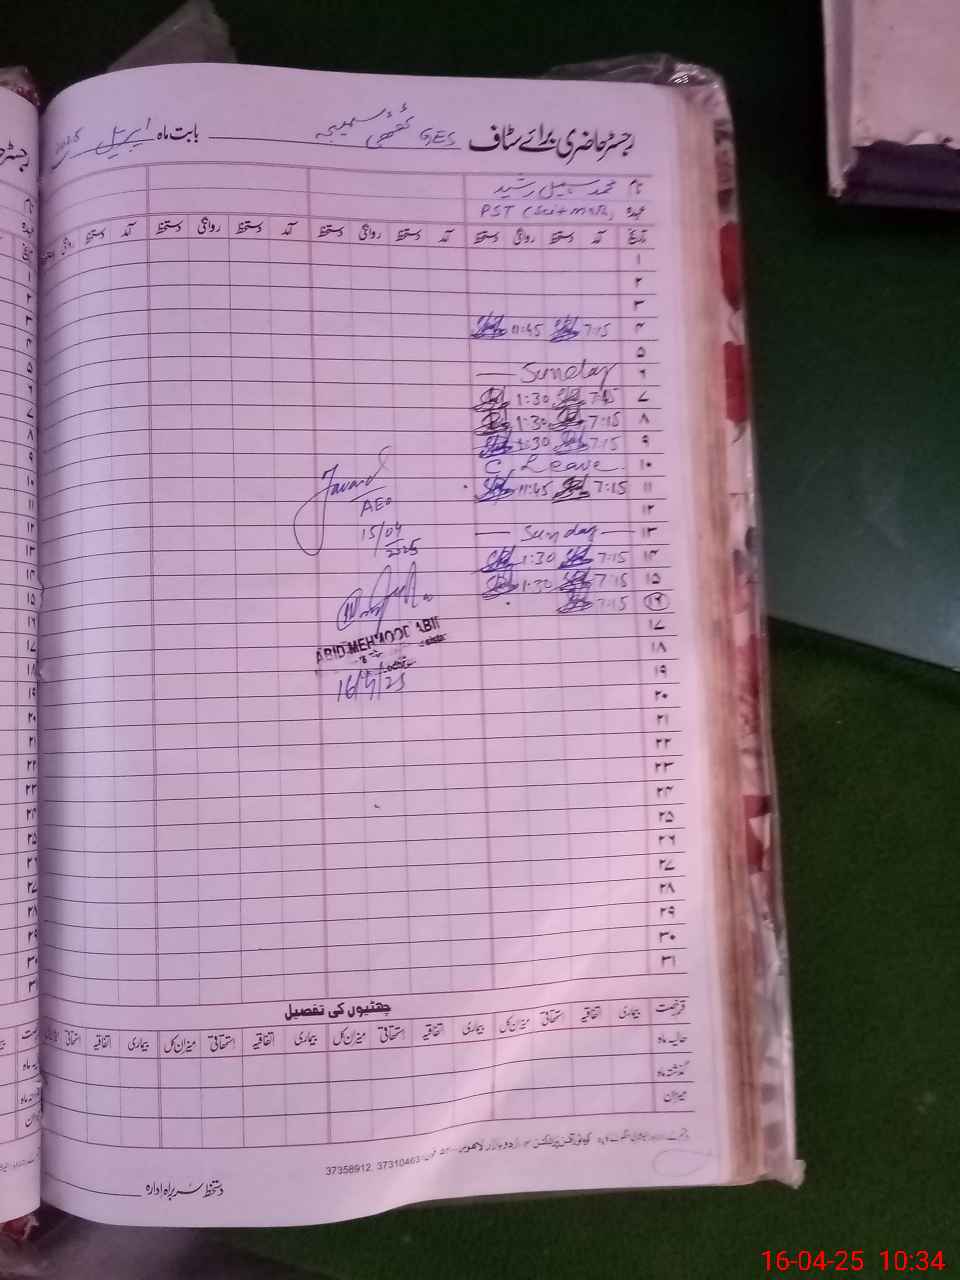 رجسٹر حاضری برائے سٹاف GES بابت ماہ اپریل
نام محمد سہیل رشید
عہدہ PST (Sci+math)
تاریخ آمد دستخط روانگی دستخط آمد دستخط روانگی دستخط آمد دستخط روانگی دستخط آمد دستخط روانگی
۱
۲
۳
۴ 7:15 11:45
۵
۶ Sunday
۷ 7:15 1:30
۸ 7:15 1:30
۹ 7:15 1:30
۱۰ C. Leave
۱۱ 7:15 11:45
۱۲
۱۳ Sunday
۱۴ 7:15 1:30
۱۵ 7:15 1:30
۱۶ 7:15
۱۷
۱۸
۱۹
۲۰
۲۱
۲۲
۲۳
۲۴
۲۵
۲۶
۲۷
۲۸
۲۹
۳۰
۳۱
Javaid
AEO
15/04
2025
ABID MEHMOOD ABID
16/4/25
چھٹیوں کی تفصیل
قسم رخصت بیماری اتفاقیہ استحقاقی میزان کل بیماری اتفاقیہ استحقاقی میزان کل بیماری اتفاقیہ استحقاقی میزان کل بیماری اتفاقیہ استحقاقی
حالیہ ماہ
گذشتہ ماہ
میزان
اردو بازار لاہور فون: 37310463, 37358912
دستخط سربراہ ادارہ
16-04-25 10:34